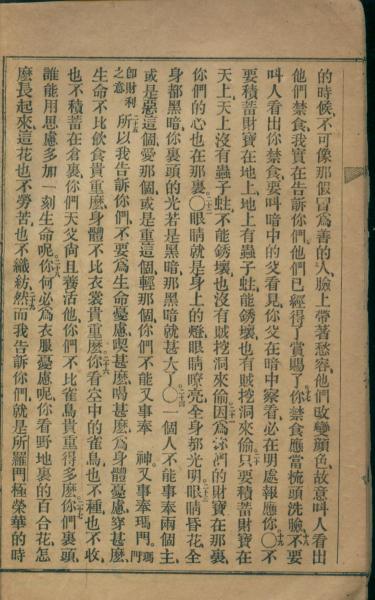 的時候、不可像那假冒爲善的人、臉上帶著愁容、他們改變顏色、故意叫人看出
他們禁食、我實在告訴你們、他們已經得了賞賜了。十七你禁食應當梳頭洗臉、十八不要
叫人看出你禁食、要叫暗中的父看見、你父在暗中察看、必在明處報應你。〇十九不
要積蓄財寶在地上、地上有蟲子蛀、能銹壞、也有賊挖洞來偷。二十只要積蓄財寶在
天上、天上沒有蟲子蛀、不能銹壞、也沒有賊挖洞來偷、二十一因爲你們的財寶在那裏、
你們的心也在那裏。〇二十二眼睛就是身上的燈、眼睛嘹亮、全身都光明。二十三眼睛昏花、全
身都黑暗、你裏頭的光若是黑暗、那黑暗就甚大了。〇二十四一個人不能事奉兩個主、
或是惡這個愛那個、或是重這個輕那個、你們不能又事奉 神、又事奉瑪門。瑪門
卽財利之意 二十五所以我告訴你們、不要爲生命憂慮喫甚麽、喝甚麽、爲身體憂慮穿甚麽、
生命不比飲食貴重麽、身體不比衣裳貴重麽。二十六你看空中的雀鳥、也不種、也不收、
也不積蓄在倉裏、你們天父尙且養活他、你們不比雀鳥貴重得多麽。二十七你們裏頭、
誰能用思慮多加一刻生命呢。二十八你何必爲衣服憂慮呢、你看野地裏的百合花、怎
麽長起來、這花也不勞苦、也不織紡。二十九然而我告訴你們、就是所羅門極榮華的時